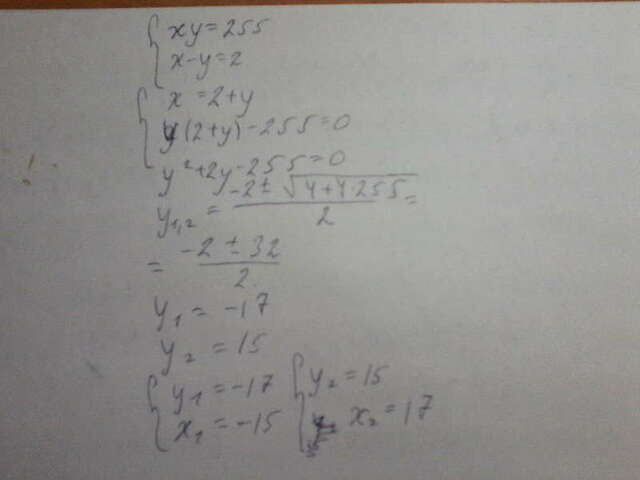 xy=255
x-y=2
x=2+y
y(2+y)-255=0
y²+2y-255=0
y₁,₂ = (-2±√(4+4·255))/2 =
= (-2±32)/2
y₁=-17
y₂=15
y₁=-17 y₂=15
x₁=-15 x₂=17